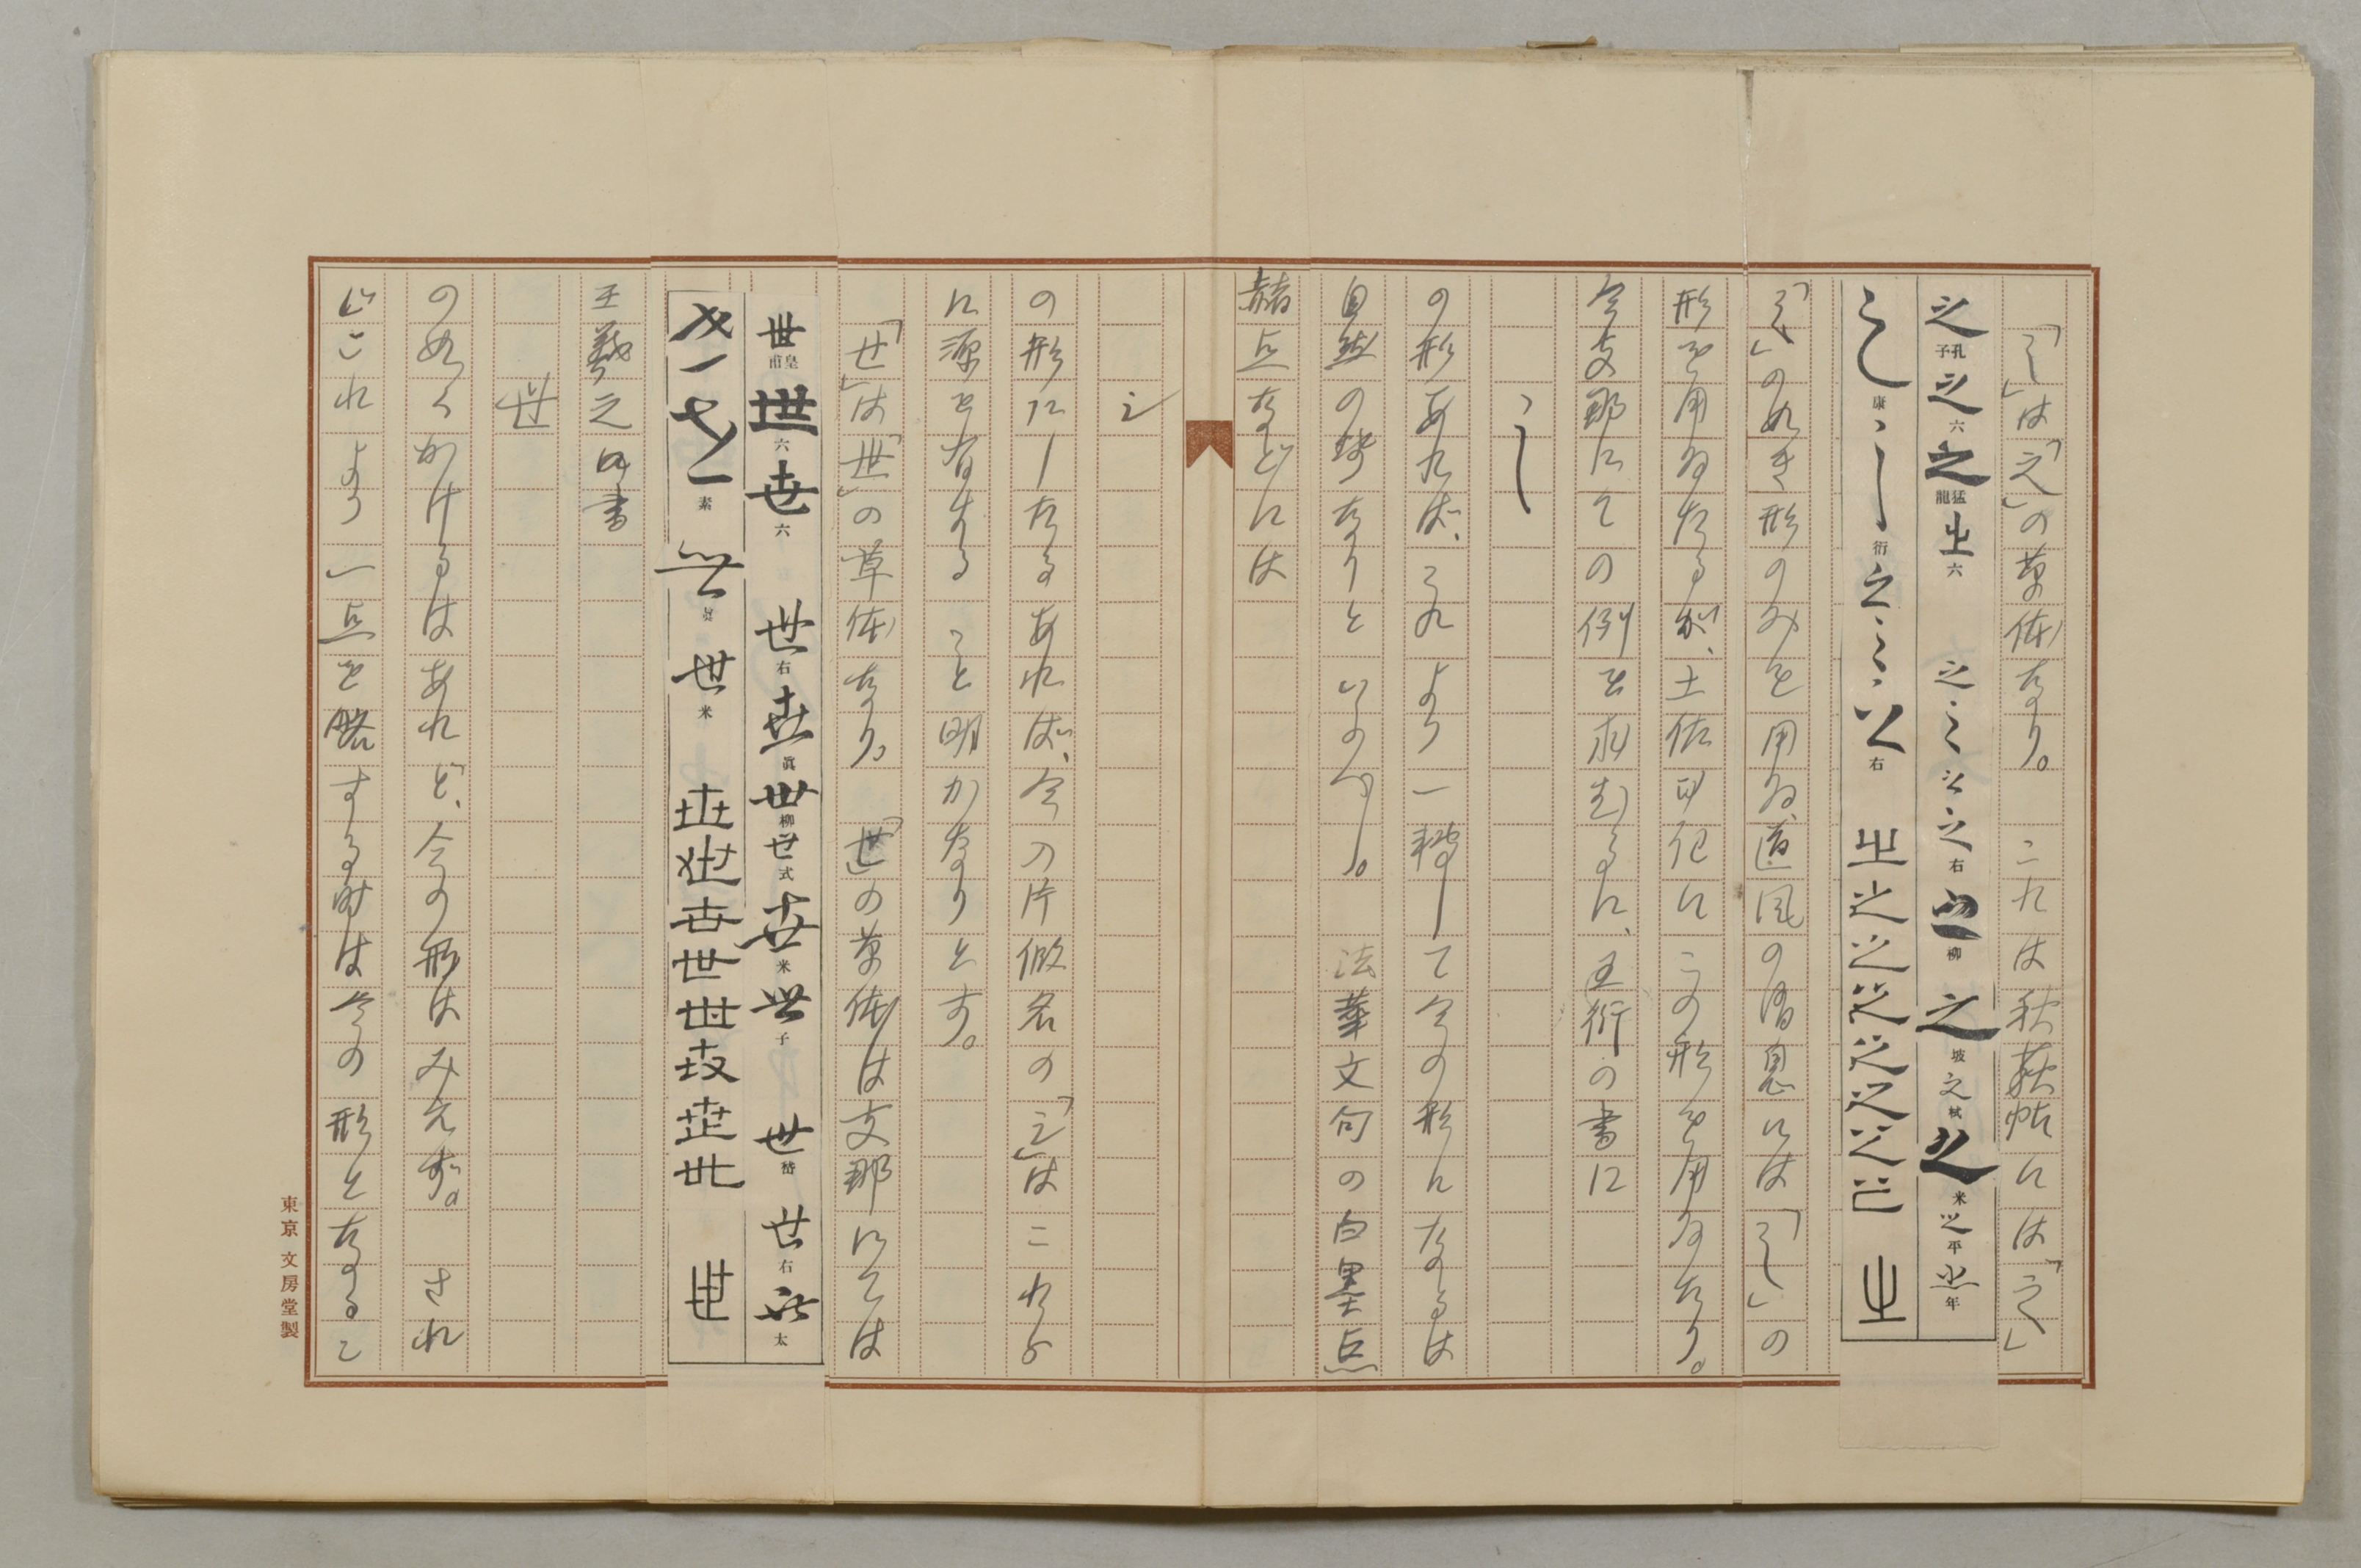 「之」は「之」の草体なり。 これは秋萩帖には「之」
之 孔子 之 六 之 猛龍 㞢 六 之 之 之 之 右 之 柳 之 坡 之 栻 之 米 之 平 㞢 年
之 康 之 衍 之 之 之 右
「之」の如き形のみを用ゐ、道風の消息には「之」の
形を用ゐたるが、土佐日記にこの形を用ゐたり。
今支那にての例を求むるに、王衍の書に
の形あれば、これより一轉して今の形になるは
自然の勢なりといふべし。 法華文句の白墨点
赭点などには
の形にしたるあれば、今の片假名の「シ」はこれら
に源を有すること明かなりとす。
「せ」は「世」の草体なり。 「世」の草体は支那にては
世 皇甫 世 六 世 六 世 右 世 眞 世 柳 世 式 世 米 世 子 世 嵇 世 右 世 太
世 素 世 世 米 世 世 世 世 世 世 世 世 世
王羲之の書
世
の如くかけるはあれど、今の形はみえず。 され
どこれより一点を略する時は今の形となるこ
東京 文房堂製